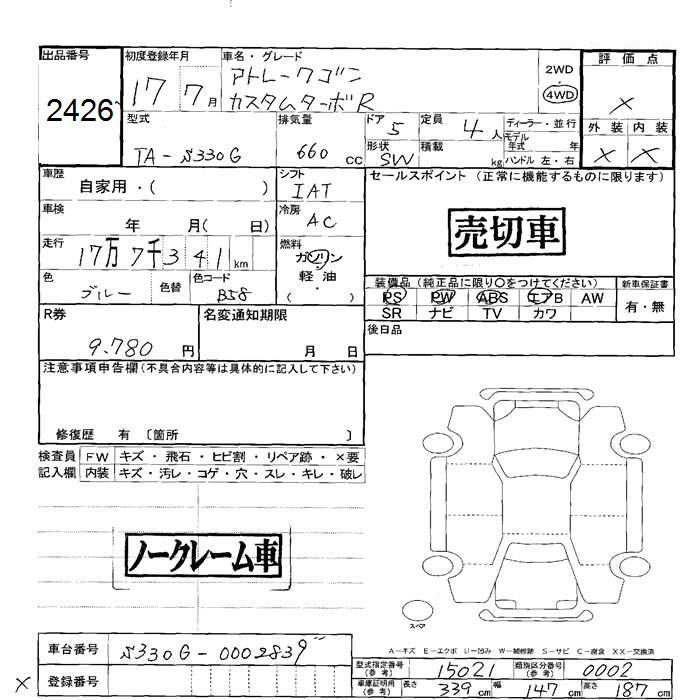 出品番号 初度登録年月 車名・グレード 評価点
2426 17 7月 アトレーワゴン 2WD ・ 4WD ×
カスタムターボR
型式 排気量 ドア 定員 ディーラー・並行 外装 内装
TA-S330G 660 cc 5 4人 モデル年式 年 × ×
形状 積載
SW kg ハンドル 左・右
車歴 シフト セールスポイント (正常に機能するものに限ります)
自家用・( ) IAT
車検 冷房
年 月( 日) AC 売切車
走行 燃料
17万7千341km ガソリン
軽油
・
( )
色 色替 色コード 装備品(純正品に限り〇をつけてください) 新車保証書
ブルー B58 PS PW ABS エアB AW 有・無
SR ナビ TV カワ
R券 名変通知期限 後日品
9.780 円 月 日
注意事項申告欄(不具合内容等は具体的に記入して下さい)
修復歴 有 〔箇所 〕
検査員 FW キズ・飛石・ヒビ割・リペア跡・×要
記入欄 内装 キズ・汚レ・コゲ・穴・スレ・キレ・破レ
ノークレーム車
スペア
A-キズ E-エクボ U-凹み W-補修跡 S-サビ C-腐食 XX-交換済
車台番号 S330G-0002839
型式指定番号(参考) 15021 類別区分番号(参考) 0002
× 登録番号
車庫証明用(参考) 長さ 339cm 幅 147cm 高さ 187cm